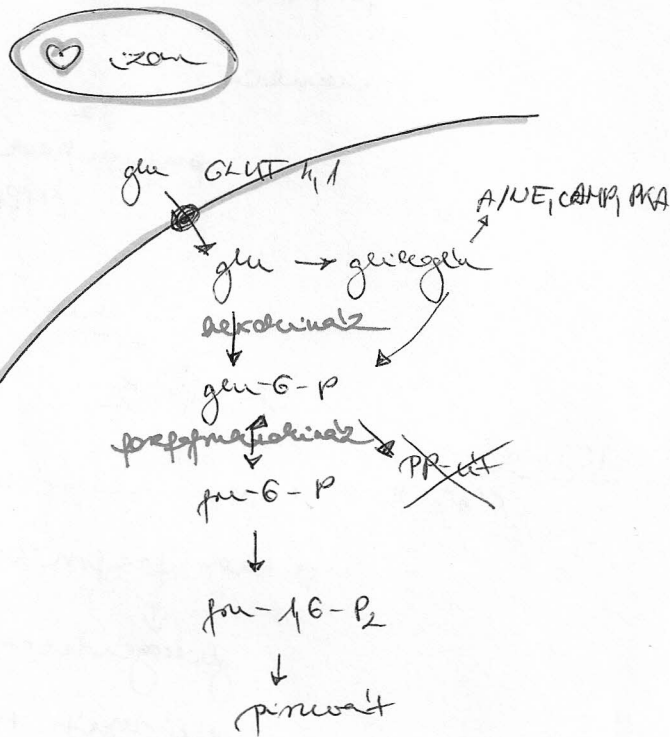 izom
glu GLUT 4,1
A/NE, cAMP, PKA
glu → glikogén
hexokináz
glu-6-P
foszfofruktokináz
PP-út
fru-6-P
fru-1,6-P₂
piruvát